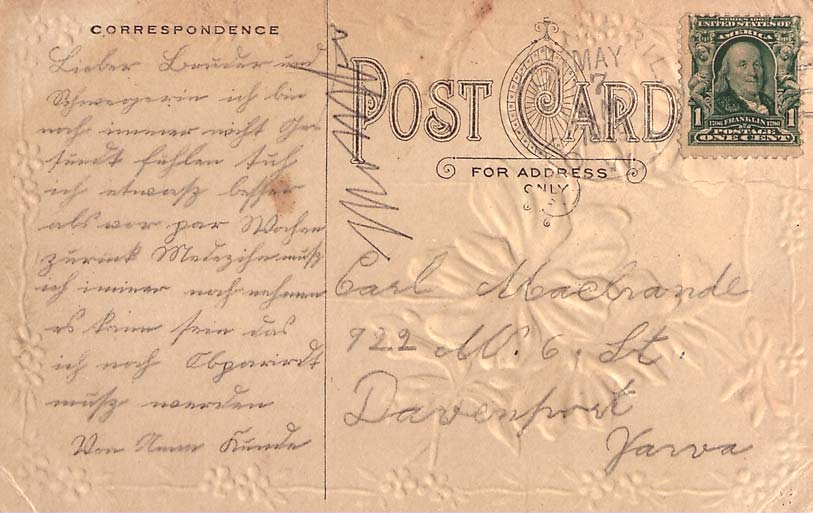 CORRESPONDENCE
Lieber Bruder und
Schwegerin ich bin
noch immer nicht Ge
sundt fühlen tuh
ich etwaß besser
als vor par Wochen
zurück Medezihn muß
ich immer noch nehmen
es kann sein das
ich noch Obparirdt
muß werden
Von Kunde
POST CARD
FOR ADDRESS
ONLY
MAY
7
SERIES 1902
UNITED STATES OF
AMERICA
1706 FRANKLIN 1790
1 1
POSTAGE
ONE CENT
Carl Macbrande
922 W. 6. St.
Davenport
Yarva